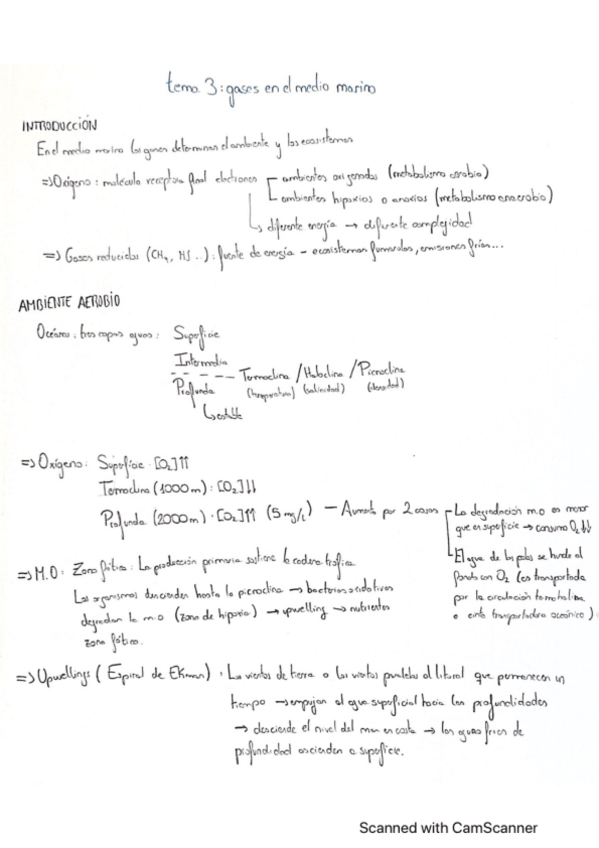 tema 3: gases en el medio marino
INTRODUCCIÓN
En el medio marino los gases determinan el ambiente y los ecosistemas
=> Oxígeno: molécula receptora final electrones
ambientes oxigenados (metabolismo aerobio)
ambientes hipoxios o anoxios (metabolismo anaerobio)
↳ diferente energía → diferente complejidad
=> Gases reducidos (CH4, HS...): fuente de energía - ecosistemas fumarolas, emisiones frías...
AMBIENTE AEROBIO
Océanos: tres capas aguas: Superficie
Intermedia
Termoclina / Haloclina / Picnoclina
(temperatura) (salinidad) (densidad)
Profunda
↳ estable
=> Oxígeno: Superficie: [O2]↑↑
Termoclina (1000m): [O2]↓↓
Profunda (2000m): [O2]↑↑ (5 mg/L) - Aumenta por 2 cosas
La degradación m.o es menor
que en superficie → consumo O2↓↓
El agua de los polos se hunde al
fondo con O2 (es transportada
por la circulación termohalina
o cinta transportadora oceánica)
=> M.O: Zona fótica: La producción primaria sostiene la cadena trófica
Los organismos descienden hasta la picnoclina → bacterias oxidativas
degradan la m.o (zona de hipoxia) → upwelling → nutrientes
zona fótica.
=> Upwellings (Espiral de Ekman): Los vientos de tierra o los vientos paralelos al litoral que permanecen un
tiempo → empujan al agua superficial hacia las profundidades
→ desciende el nivel del mar en costa → las aguas frías de
profundidad ascienden a superficie.
Scanned with CamScanner